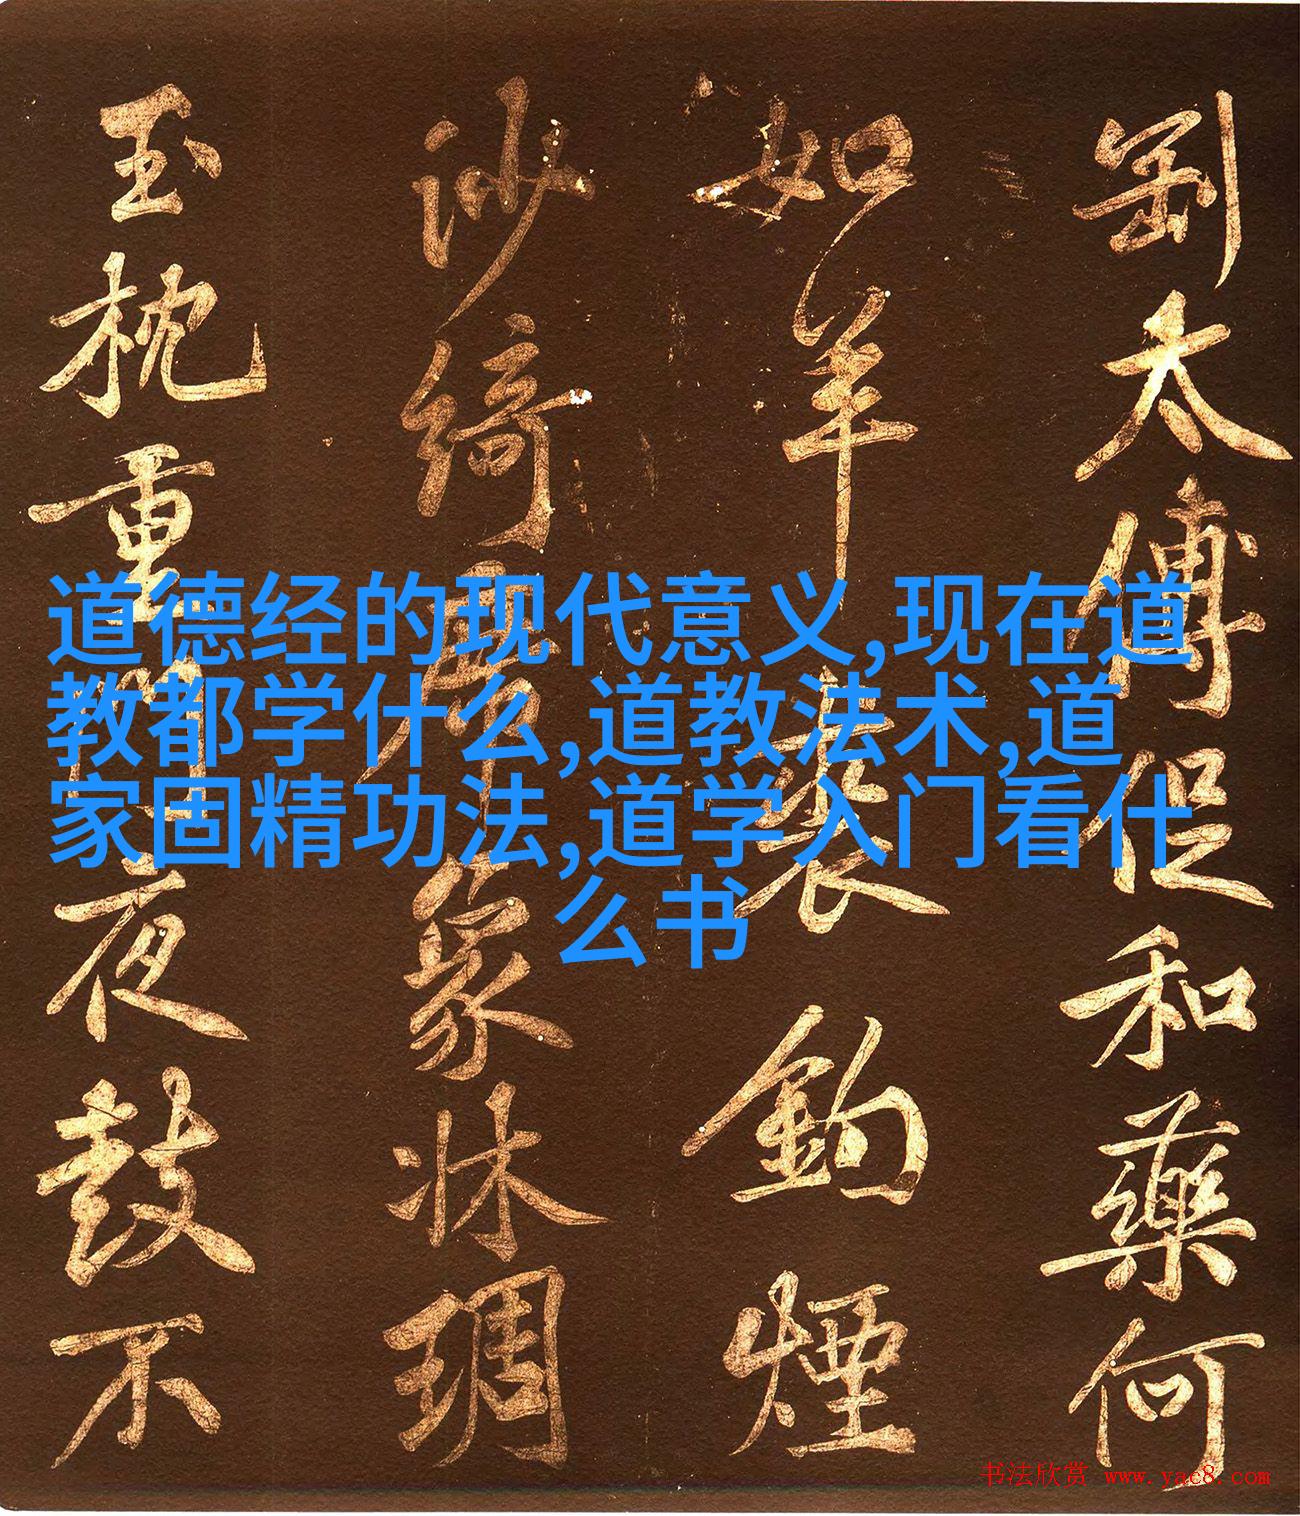 剛太傅促和藥何
如羊裘釣煙
沙綺席象牀琱
玉枕重門夜鼓不
道德经的现代意义,现在道
教都学什么,道教法术,道
家固精功法,道学入门看什
么书
书法欣赏 www.yac8.com